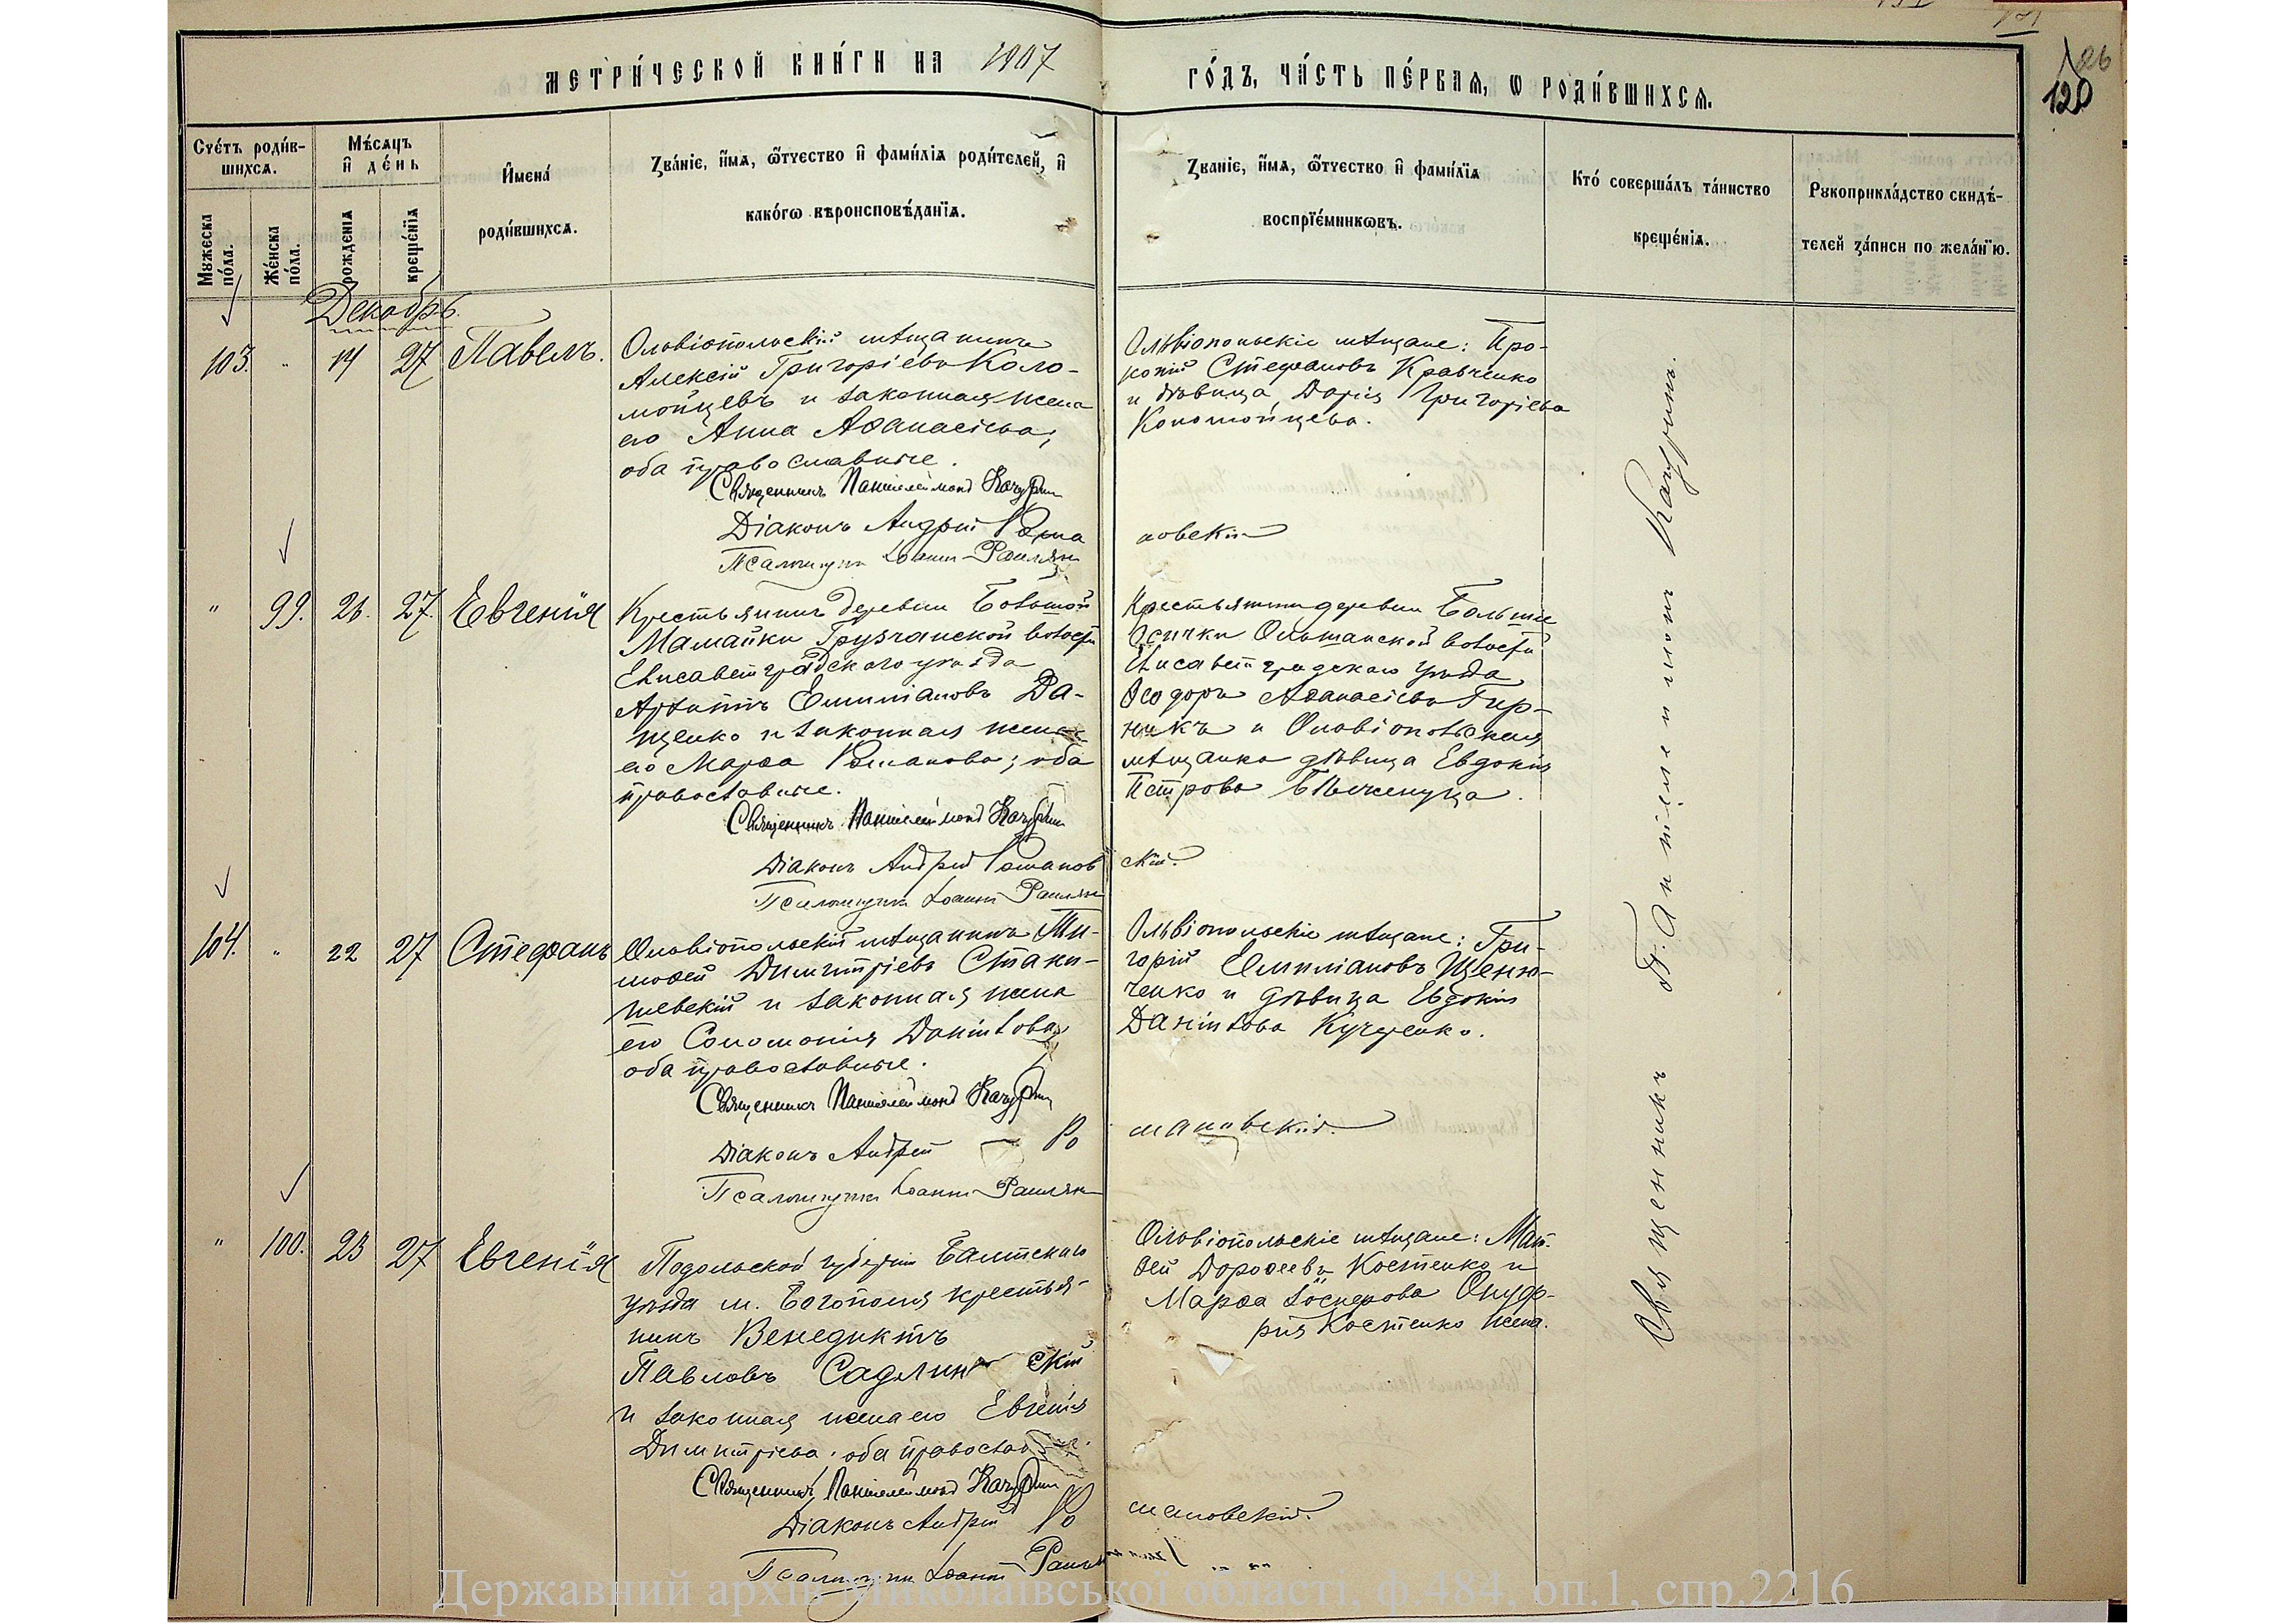 МЕТРИ́ЧЕСКОЙ КНИ́ГИ НА 1907
ГО́ДЪ, ЧА́СТЬ ПЕ́РВАѦ, Ѡ РОДИ́ВШИХСѦ.
120
Сче́тъ роди́в-
шихсѧ.
Мꙋжеска по́ла.
Же́нска по́ла.
Мѣ́сѧцъ
и҆ де́нь
рожденїѧ
креще́нїѧ
И҆мена́
роди́вшихсѧ.
Зва́нїе, и҆́мѧ, ѻ҆́тчество и҆ фами́лїѧ роди́телей, и҆
како́гѡ вѣроисповѣ́данїѧ.
Званїе, и҆́мѧ, ѻ҆́тчество и҆ фами́лїѧ
воспрїе́мникѡвъ.
Кто́ соверша́лъ та́инство
креще́нїѧ.
Рꙋкоприкла́дство свидѣ́-
телей за́писи по жела́нїю.
Декабрь.
103. " 14 27 Павелъ.
Ольвіопольскій мѣщанинъ
Алексій Григоріевъ Коло-
мойцевъ и законная жена
его Анна Аѳанасіева;
оба православные.
Священникъ Пантелеймонъ Качурин
Діаконъ Андрей Рома
новскій
Псаломщикъ Іоаннъ
Ольвіопольскіе мѣщане: Про-
копій Стефановъ Кравченко
и дѣвица Дарія Григоріева
Коломойцева.
" 99. 26. 27. Евгенія
Крестьянинъ деревни Большой
Мамайки Грузчанской волости
Елисаветградского уѣзда
Емиліановъ Да-
щенко и законная жена
его Марѳа Романова; оба
православные.
Священникъ Пантелеймонъ Качурин
Діаконъ Андрей Романов
скій.
Псаломщикъ Іоаннъ
Крестьянинъ деревни Больше
Осички Ольшанской волости
Елисаветградскаго уѣзда
Ѳеодоръ Аѳанасіевъ Гир-
никъ и Ольвіопольская
мѣщанка дѣвица Евдокія
Петрова
104. " 22 27 Стефанъ
Ольвіопольскій мѣщанинъ Ти-
моѳей Димитріевъ
и законная жена
его Соломонія Даніилова,
оба православные.
Священникъ Пантелеймонъ Качурин
Діаконъ Андрей Ро
мановскій.
Псаломщикъ Іоаннъ
Ольвіопольскіе мѣщане: Гри-
горій Емиліановъ
и дѣвица Евдокія
Даніилова Кучеренко.
" 100. 23 27 Евгенія
Подольской губерніи Балтскаго
уѣзда м. Богополя крестья-
нинъ Венедиктъ
Павловъ
и законная жена его Евгенія
Димитріева; оба
Священникъ Пантелеймонъ Качурин
Діаконъ Андрей Ро
мановскій.
Псаломщикъ Іоаннъ
Ольвіопольскіе мѣщане: Мат-
ѳей Дороѳеевъ Костенко и
Марѳа Онуф-
рія Костенко жена.
Священникъ Пантелеимонъ Качуринъ.
Державний архів Миколаївської області, ф.484, оп.1, спр.2216